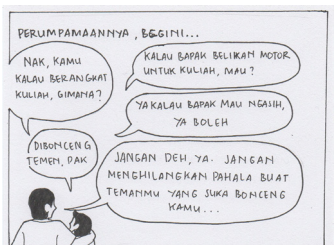 PERUMPAMAANNYA, BEGINI...
NAK, KAMU
KALAU BERANGKAT
KULIAH, GIMANA?
KALAU BAPAK BELIKAN MOTOR
UNTUK KULIAH, MAU?
YA KALAU BAPAK MAU NGASIH,
YA BOLEH
DIBONCENG
TEMEN, PAK
JANGAN DEH, YA. JANGAN
MENGHILANGKAN PAHALA BUAT
TEMANMU YANG SUKA BONCENG
KAMU...